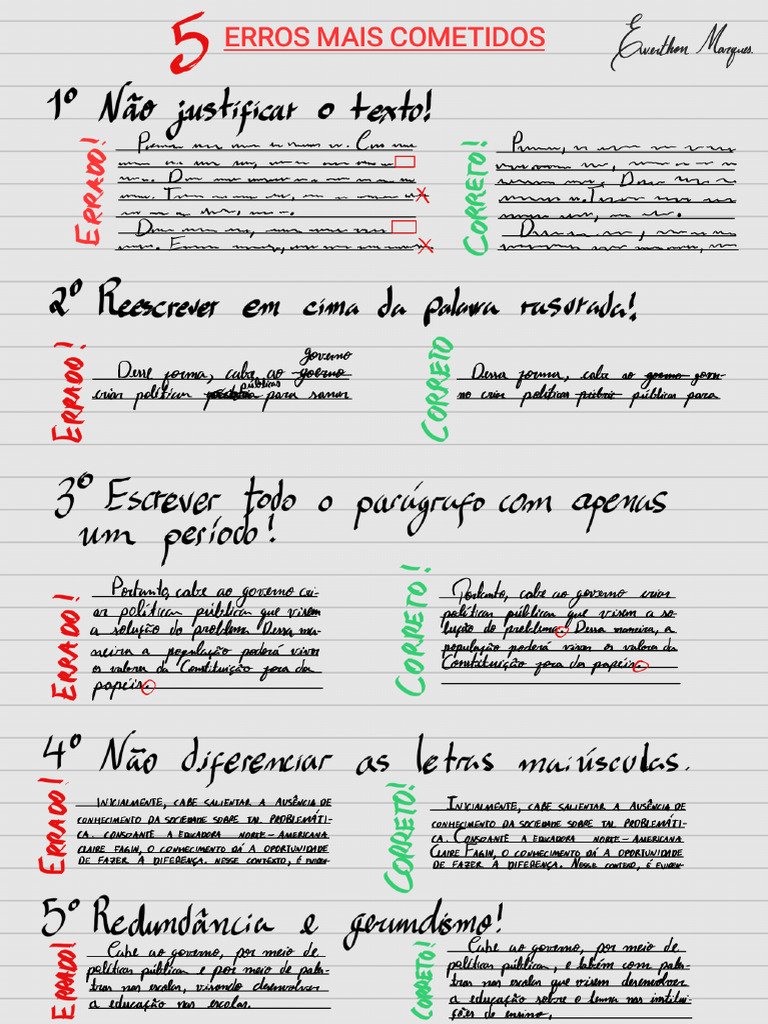 5 ERROS MAIS COMETIDOS
Ewerthon Marques
1º Não justificar o texto!
ERRADO!
CORRETO!
2º Reescrever em cima da palavra rasurada!
ERRADO!
governo
Desse forma, cabe ao goerno
públicas
criar políticas para sanar
CORRETO
Dessa forma, cabe ao goerno gover-
no criar políticas públicas para
3º Escrever todo o parágrafo com apenas
um período!
ERRADO!
Portanto, cabe ao governo cri-
ar políticas públicas que visem
a solução do problema Dessa ma-
neira a população poderá viver
os valores da Constituição fora dos
papéis.
CORRETO!
Portanto, cabe ao governo criar
políticas públicas que visem a so-
lução do problema. Dessa maneira, a
população poderá viver os valores da
Constituição fora dos papéis.
4º Não diferenciar as letras maiúsculas.
ERRADO!
INICIALMENTE, CABE SALIENTAR A AUSÊNCIA DE
CONHECIMENTO DA SOCIEDADE SOBRE TAL PROBLEMÁTI-
CA. CONSOANTE A EDUCADORA NORTE-AMERICANA
CLAIRE FAGIN, O CONHECIMENTO DÁ A OPORTUNIDADE
DE FAZER A DIFERENÇA. NESSE CONTEXTO, É EVIDEN-
CORRETO!
INICIALMENTE, CABE SALIENTAR A AUSÊNCIA DE
CONHECIMENTO DA SOCIEDADE SOBRE TAL PROBLEMÁTI-
CA. CONSOANTE A EDUCADORA NORTE-AMERICANA
CLAIRE FAGIN, O CONHECIMENTO DÁ A OPORTUNIDADE
DE FAZER A DIFERENÇA. NESSE CONTEXO, É EVIDEN-
5º Redundância e gerundismo!
ERRADO!
Cabe ao governo, por meio de
políticas públicas e por meio de pales-
tras nas escolas, visando desenvolver
a educação nas escolas.
CORRETO!
Cabe ao governo, por meio de
políticas públicas, e também com pales-
tras nas escolas que visem desenvolver
a educação sobre o tema nas institui-
ções de ensino.